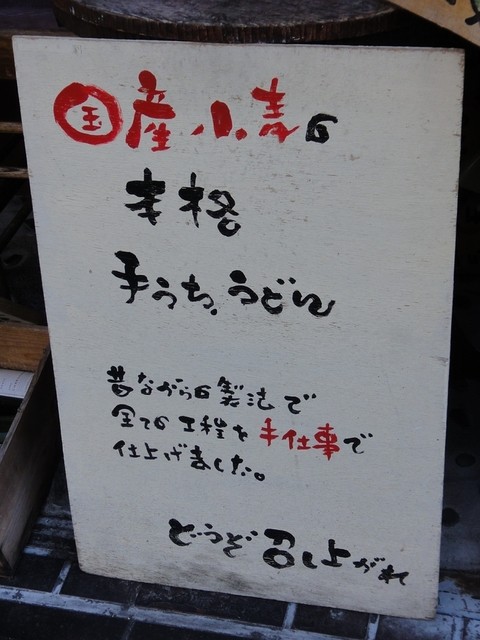 国産小麦の
本格
手うち、うどん
昔ながらの製法で
全ての工程を手仕事で
仕上げました。
どうぞ召し上がれ